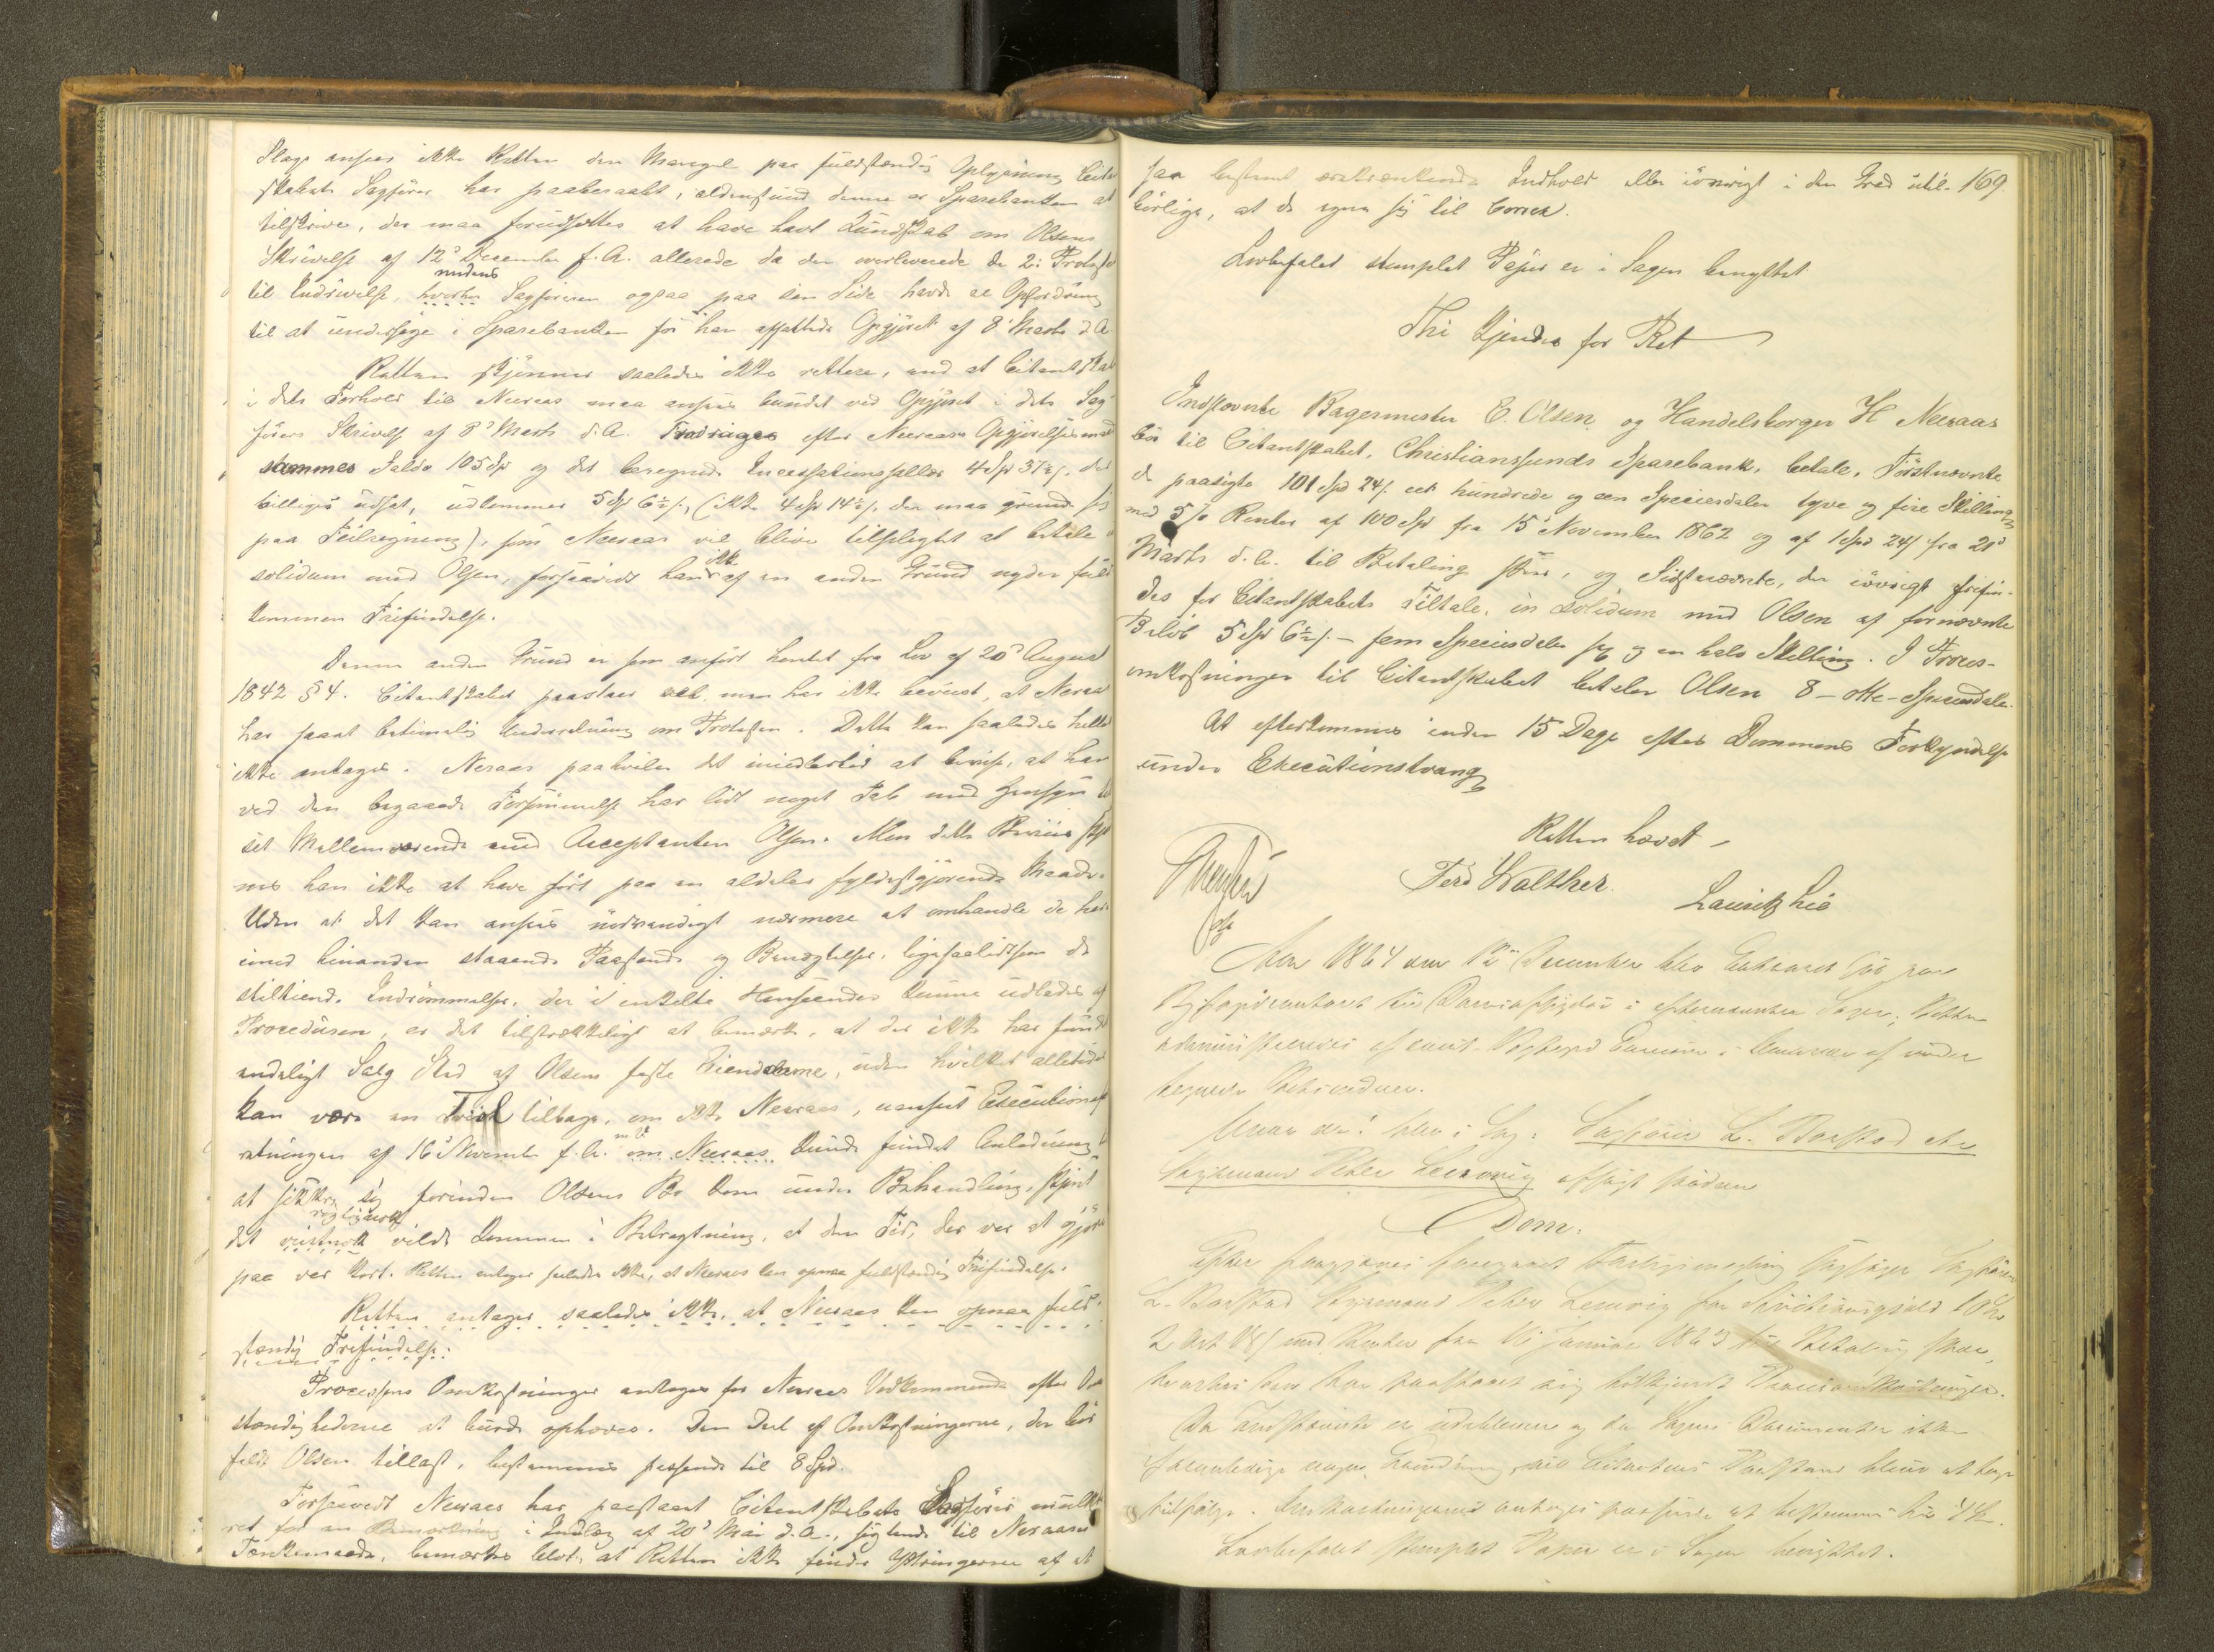 Slags ansees ikke Retten den Mangel paa fuldstændig Oplysning Citant
skabets Sagfører har paaberaabt, aldenstund denne er Sparebanken at
tilskrive, der maa forudsættes at have havt Kundskab om Olsens
Skrivelse af 12' December f. A. allerede da den overleverede de 2: Protester
til Inddrivelse, hvorhos medens Sagføreren ogsaa paa sin Side havde al Opfordring
til at undersøge i Sparebanken før han affattede Opgjøret af 8' Marts d. A.
Retten skjønner saaledes ikke rettere, end at Citantskabet
i dets Forhold til Neeraas maa ansees bundet ved Opgjøret i dets Sag-
førers Skrivelse af 8' Marts d. A. Fradrages efter Neeraas Opgjørelsesmaade
sammes Saldo 105 Spd og det beregnede Incassationssallær 4 Spd 31½ s, der
billiges udsat, udkommer 5 Spd 6½ s, (ikke 4 Spd 14½ s, der maa grunde sig
paa Feilregning), som Neeraas vil blive tilpligtet at betale in
solidum med Olsen, forsaavidt han ikke af en anden Grund nyder fuld
kommen Frifindelse.
Denne anden Grund er som anført hentet fra Lov af 20' August
1842 § 4. Citantskabet paastaar vel, men har ikke beviist, at Neraas
har faaet betimelig Underretning om Protesten. Dette kan saaledes heller
ikke antages. Neraas paahviler det imidlertid at bevise, at han
ved den begaaede Forsømmelse har lidt noget Tab med Hensyn til
sit Mellemværende med Acceptanten Olsen. Men dette Beviis skjøn
nes han ikke at have ført paa en aldeles fyldestgjørende Maade.
Uden at det kan ansees nødvendigt nærmere at omhandle de her
imod hinanden staaende Paastande og Benægtelser, ligesaalidtsom de
stiltiende Indrømmelser, der i enkelte Henseender kunne udledes af
Proceduren, er det tilstrækkeligt at bemærke, at der ikke har fundet
endeligt Salg Sted af Olsens faste Eiendomme, uden hvilket alletider
kan være en Tvivl tilbage, om ikke Neeraas, uanseet Executionsfor
retningen af 16' November f. A. om Neeraas kunde fundet Anledning
at sikkre sig forinden Olsens Bo kom under Behandling, skjønt
det vistnok vilde kommen i Betragtning, at den Tid, der var at gjøre
paa var kort. Retten antager saaledes ikke, at Neeraas kan opnaa fuldstændig Frifindelse.
Retten antager saaledes ikke, at Neeraas kan opnaa fuld-
stændig Frifindelse.
Processens Omkostninger antages for Neeraas Vedkommende efter Om
stændighederne at burde ophæves. Den Deel af Omkostningerne, der bør
falde Olsen tillast, bestemmes passende til 8 Spd.
Forsaavidt Neeraas har paastaaet Citantskabets Sagfører mulkte
ret for en Bemærkning i Indlæg af 20' Mai d. A., sigtende til Neraases
Tænkemaade, bemærkes blot, at Retten ikke finder Yttringerne af et
saa bestemt ærekrænkende Indhold eller iøvrigt i den Grad util- 169.
børlige, at de egne sig til Correx.
Lovbefalet stemplet Papir er i Sagen benyttet.
Thi Kjendes for Ret
Indstævnte Bagermester E. Olsen og Handelsborger H Neeraas
bør til Citantskabet, Christianssunds Sparebank, betale, Førstnævnte
de paasøgte 101 Spd 24 s. eet hundrede og een Speciesdaler tyve og fire Skilling,
med 5 % Renter af 100 Spd fra 15' November 1862 og af 1 Spd 24 s fra 21'
Marts d. A. til Betaling skeer, og Sidstnævnte, der iøvrigt frifin-
des for Citantskabets Tiltale, in solidum med Olsen af fornævnte
Beløb 5 Spd 6½ s. – fem Speciesdaler sex og en halv Skilling. I Proces-
omkostninger til Citantskabet betaler Olsen 8 – otte – Speciesdaler.
At efterkommes inden 15 Dage efter Dommens Forkyndelse
under Executionstvang
Retten hævet –
Ferd Walther.
Lauritz Lie
Aar 1864 den 12' December blev Extraret sat paa
Byfogedcontoret til Domsafsigelse i efternævnte Sager; Retten
administreredes af const. Byfoged i Overvær af under
tegnede Retsvidner.
blev i Sag: Sagfører L. Borstad ctra
Styrmand Peter Lervig afsagt saadan
Dom:
Efter forgjæves foregaaet Forligsmægling sagsøger Sagfører
L. Borstad Styrmand Peter Lervig for Skyld 10 Spd
2 Ort 18 s med Renter fra 16' Januar 1863 til Betaling skeer,
hvorhos han har paastaaet sig tilkjendt Procesomkostninger.
Da Indstævnte er udebleven og da Sagens Documenter ikke
foranledige nogen Grundning, vil Citantens Paastand blive at tage
tilfølge. Omkostningerne antages passende at bestemmes til 4 Spd.
Lovbefalet stemplet Papir er i Sagen benyttet.